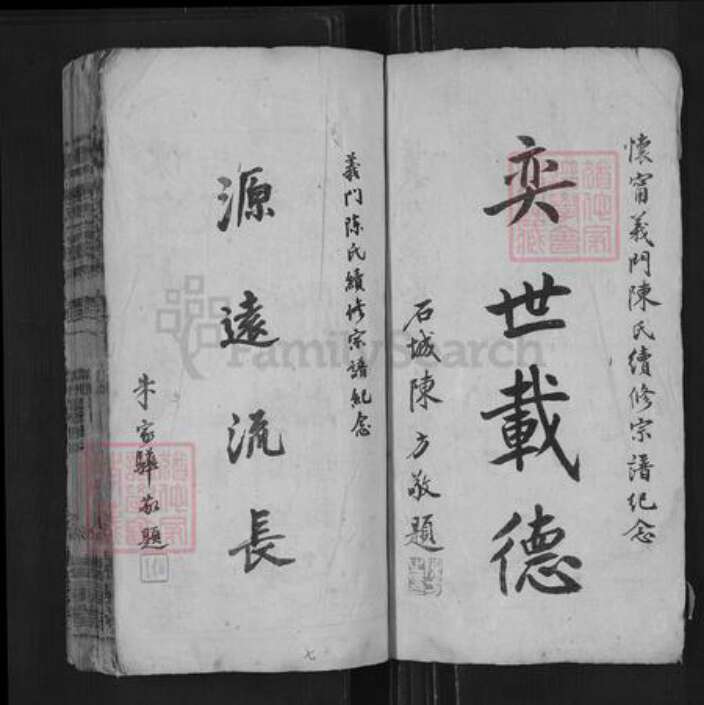 懷甯義門陳氏續修宗譜紀念
奕世載德
石城陳方敬題
義門陳氏續修宗譜紀念
源遠流長
朱家驊敬題
七
FamilySearch